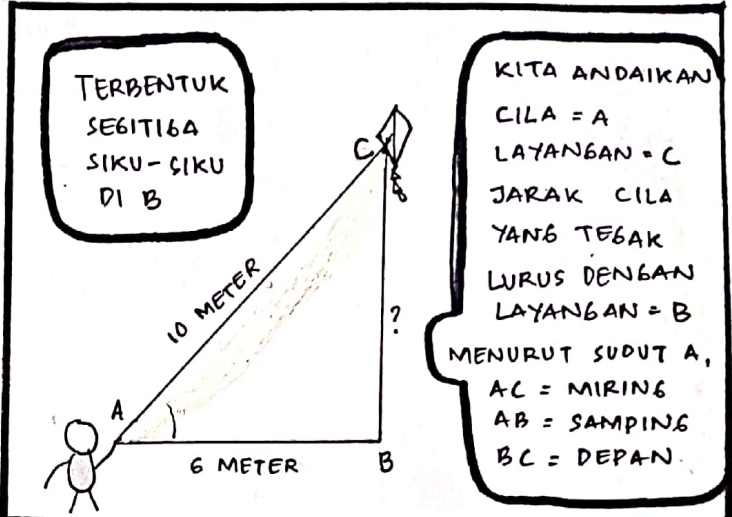 TERBENTUK
SEGITIGA
SIKU-SIKU
DI B
C
10 METER
?
A
6 METER
B
KITA ANDAIKAN
CILA = A
LAYANGAN = C
JARAK CILA
YANG TEGAK
LURUS DENGAN
LAYANGAN = B
MENURUT SUDUT A,
AC = MIRING
AB = SAMPING
BC = DEPAN.